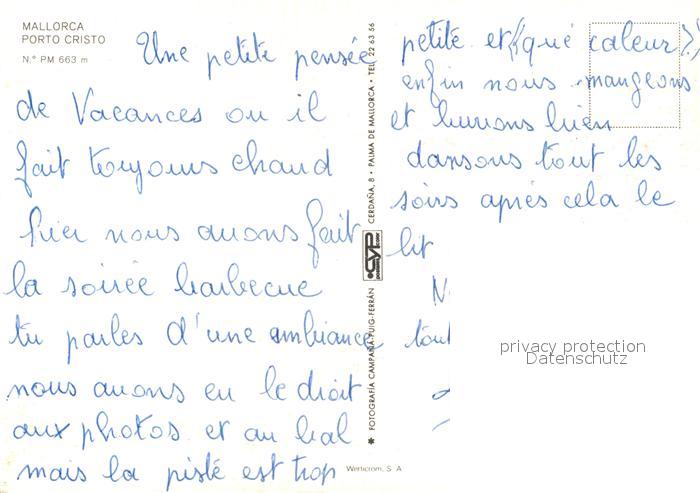 MALLORCA
PORTO CRISTO
N.º PM 663 m
Une petite pensée
de Vacances ou il
fait toujours chaud
hier nous avons fait
la soirée barbecue
tu parles d'une ambiance
nous avons eu le droit
aux photos et au bal
mais la pisté est trop
FOTOGRAFIA CAMPAÑA-PUIG-FERRÁN
CYP
CERDAÑA, 8 • PALMA DE MALLORCA • TEL. 22 63 56
Werticrom, S. A
petite et ((qué caleur))
enfin nous mangeons
et buvons bien
dansons tout les
soirs après cela le
lit
N
tout
privacy protection
Datenschutz